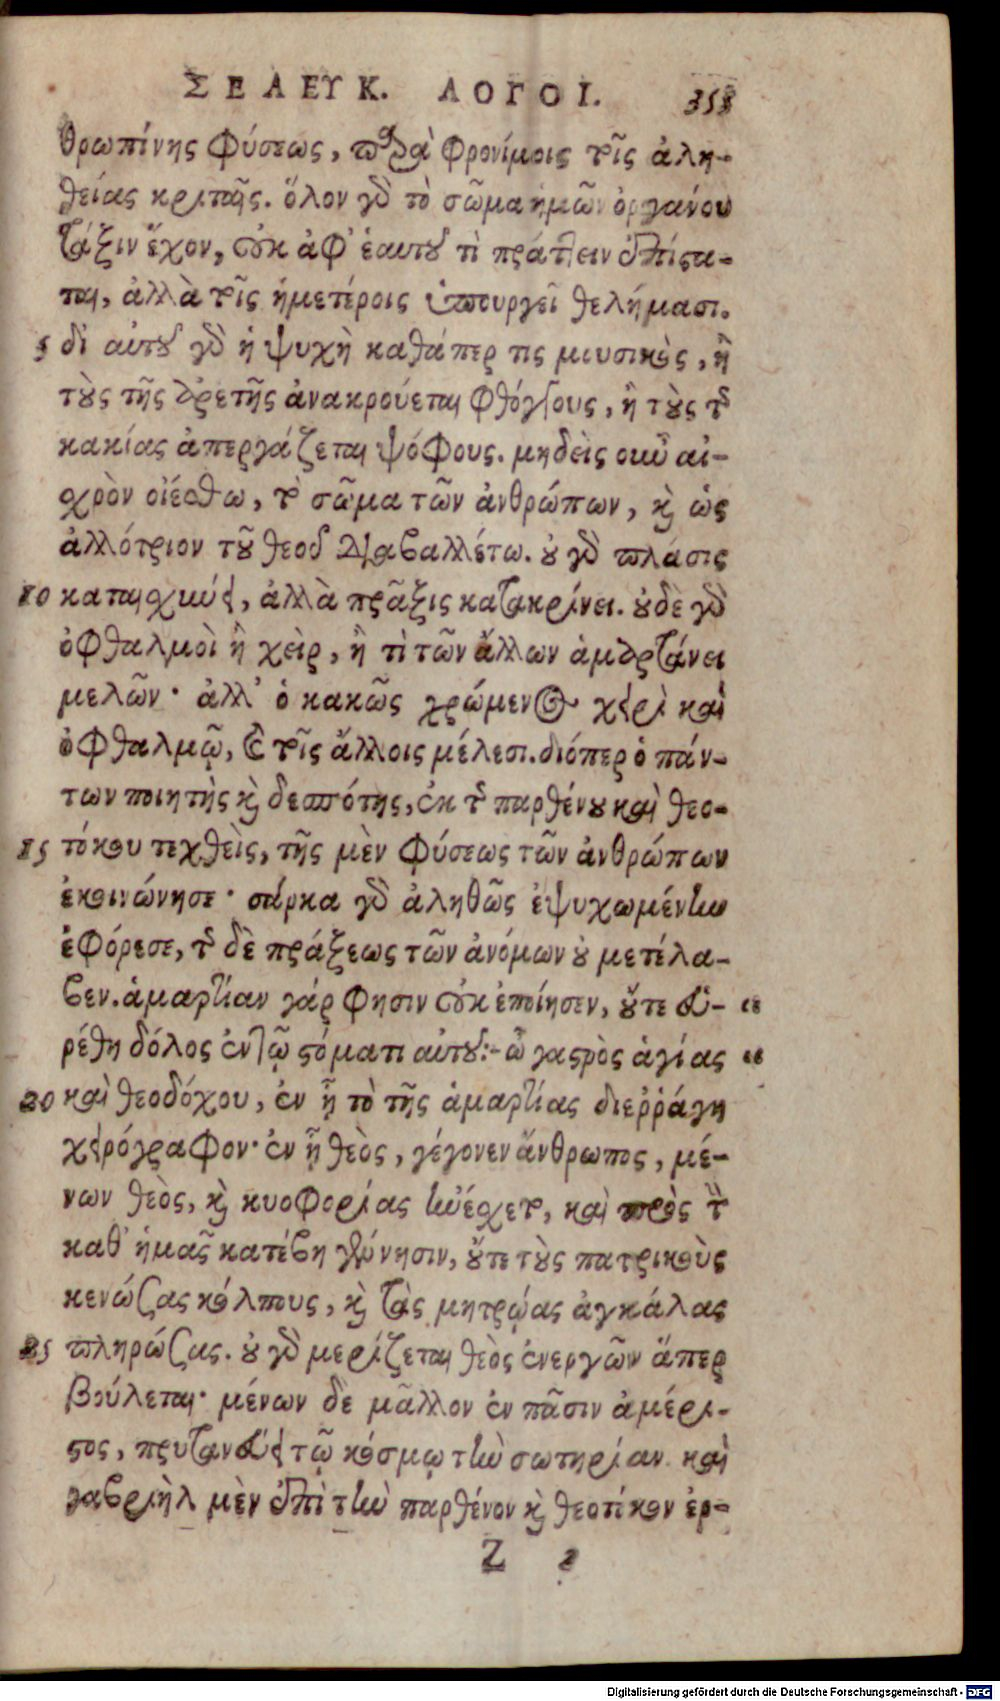 ΣΕΛΕΥΚ. ΛΟΓΟΙ. 353
θρωπίνης φύσεως, παρὰ φρονίμοις τοῖς ἀλη-
θείας κριταῖς. ὅλον γὸ τὸ σῶμα ἡμῶν ὀργάνου
τάξιν ἔχον, οὐκ ἀφ' ἑαυτοῦ τὶ πράττειν ἐπίστα-
ται, ἀλλὰ τοῖς ἡμετέροις ὑπουργεῖ θελήμασι.
5 δι αὐτοῦ γὸ ἡ ψυχὴ καθάπερ τις μουσικὸς, ἢ
τοὺς τῆς ἀρετῆς ἀνακρούεται φθόγγους, ἢ τοὺς τῆς
κακίας ἀπεργάζεται ψόφους. μηδεὶς οὖν αἰ-
χρὸν οἰέσθω, τὸ σῶμα τῶν ἀνθρώπων, καὶ ὡς
ἀλλότριον τοῦ θεοῦ διαβαλλέτω. οὐ γὸ πλάσις
10 καταισχύνει, ἀλλὰ πρᾶξις κατακρίνει. οὐδὲ γὸ
ὀφθαλμοὶ ἢ χεὶρ, ἢ τὶ τῶν ἄλλων ἁμαρτάνει
μελῶν· ἀλλ' ὁ κακῶς χρώμενος χειρὶ καὶ
ὀφθαλμῷ, καὶ τοῖς ἄλλοις μέλεσι. διόπερ ὁ πάν-
των ποιητὴς καὶ δεσπότης, ἐκ τῆς παρθένου καὶ θεο-
15 τόκου τεχθεὶς, τῆς μὲν φύσεως τῶν ἀνθρώπων
ἐκοινώνησε· σάρκα γὸ ἀληθῶς ἐψυχωμένην
ἐφόρεσε, τῆς δὲ πράξεως τῶν ἀνόμων οὐ μετέλα-
βεν. ἁμαρτίαν γάρ φησιν οὐκ ἐποίησεν, οὔτε εὑ- "
ρέθη δόλος ἐν τῷ στόματι αὐτοῦ:- ὦ γαστρὸς ἁγίας "
20 καὶ θεοδόχου, ἐν ᾗ τὸ τῆς ἁμαρτίας διεῤῥάγη
χειρόγραφον· ἐν ᾗ θεὸς, γέγονεν ἄνθρωπος, μέ-
νων θεὸς, καὶ κυοφορίας ἠνέχετο, καὶ πρὸς τὴν
καθ' ἡμᾶς κατέβη γέννησιν, οὔτε τοὺς πατρικοὺς
κενώσας κόλπους, καὶ τὰς μητρῴας ἀγκάλας
25 πληρώσας. οὐ γὸ μερίζεται θεὸς ἐνεργῶν ἅπερ
βούλεται· μένων δὲ μᾶλλον ἐν πᾶσιν ἀμέρι-
στος, πρυτανεύει τῷ κόσμῳ τὴν σωτηρίαν. καὶ
γαβριὴλ μὲν ἐπὶ τὴν παρθένον καὶ θεοτόκον ἐρ-
Z 2
Digitalisierung gefördert durch die Deutsche Forschungsgemeinschaft - DFG